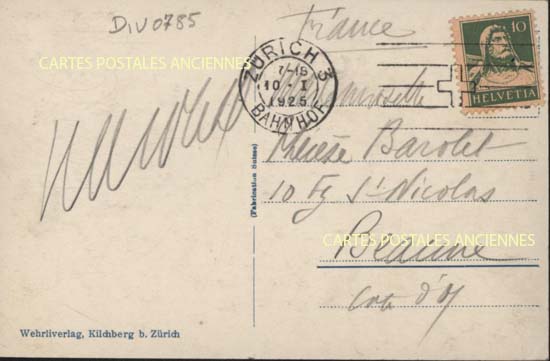 DIV0785
France
10
HELVETIA
ZÜRICH 3
7-18
10-I
1925
BAHNHOF
CARTES POSTALES ANCIENNES
Mademoiselle
Thérèse Barolet
10 Fg St Nicolas
Beaune
CARTES POSTALES ANCIENNES
Cote d'Or
(Fabrication Suisse)
Wehrliverlag, Kilchberg b. Zürich